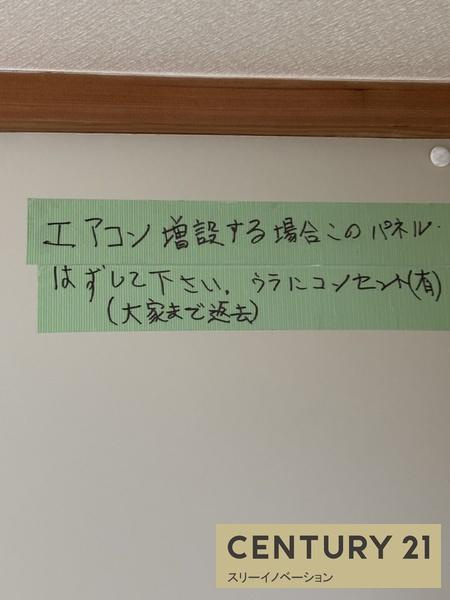 エアコン増設する場合このパネル.
はずして下さい。ウラにコンセント(有)
(大家まで返去)
CENTURY 21
スリーイノベーション